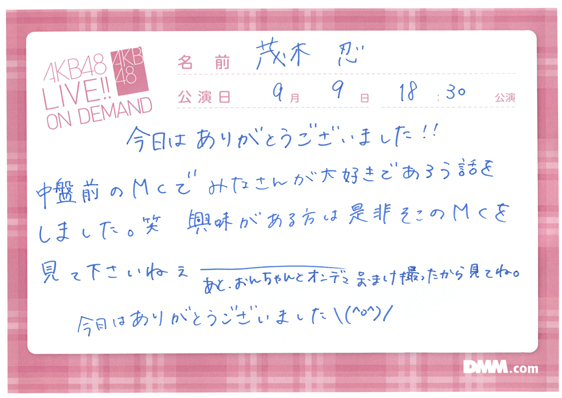 AKB48
LIVE!!
ON DEMAND
AKB
48
名前 茂木 忍
公演日 9月 9日 18:30 公演
今日はありがとうございました!!
中盤前のMCでみなさんが大好きであろう話を
しました。笑 興味がある方は是非そこのMCを
見て下さいねぇ
あと、おんちゃんとオンデマおまけ撮ったから見てね。
今日はありがとうございました\(^o^)/
DMM.com